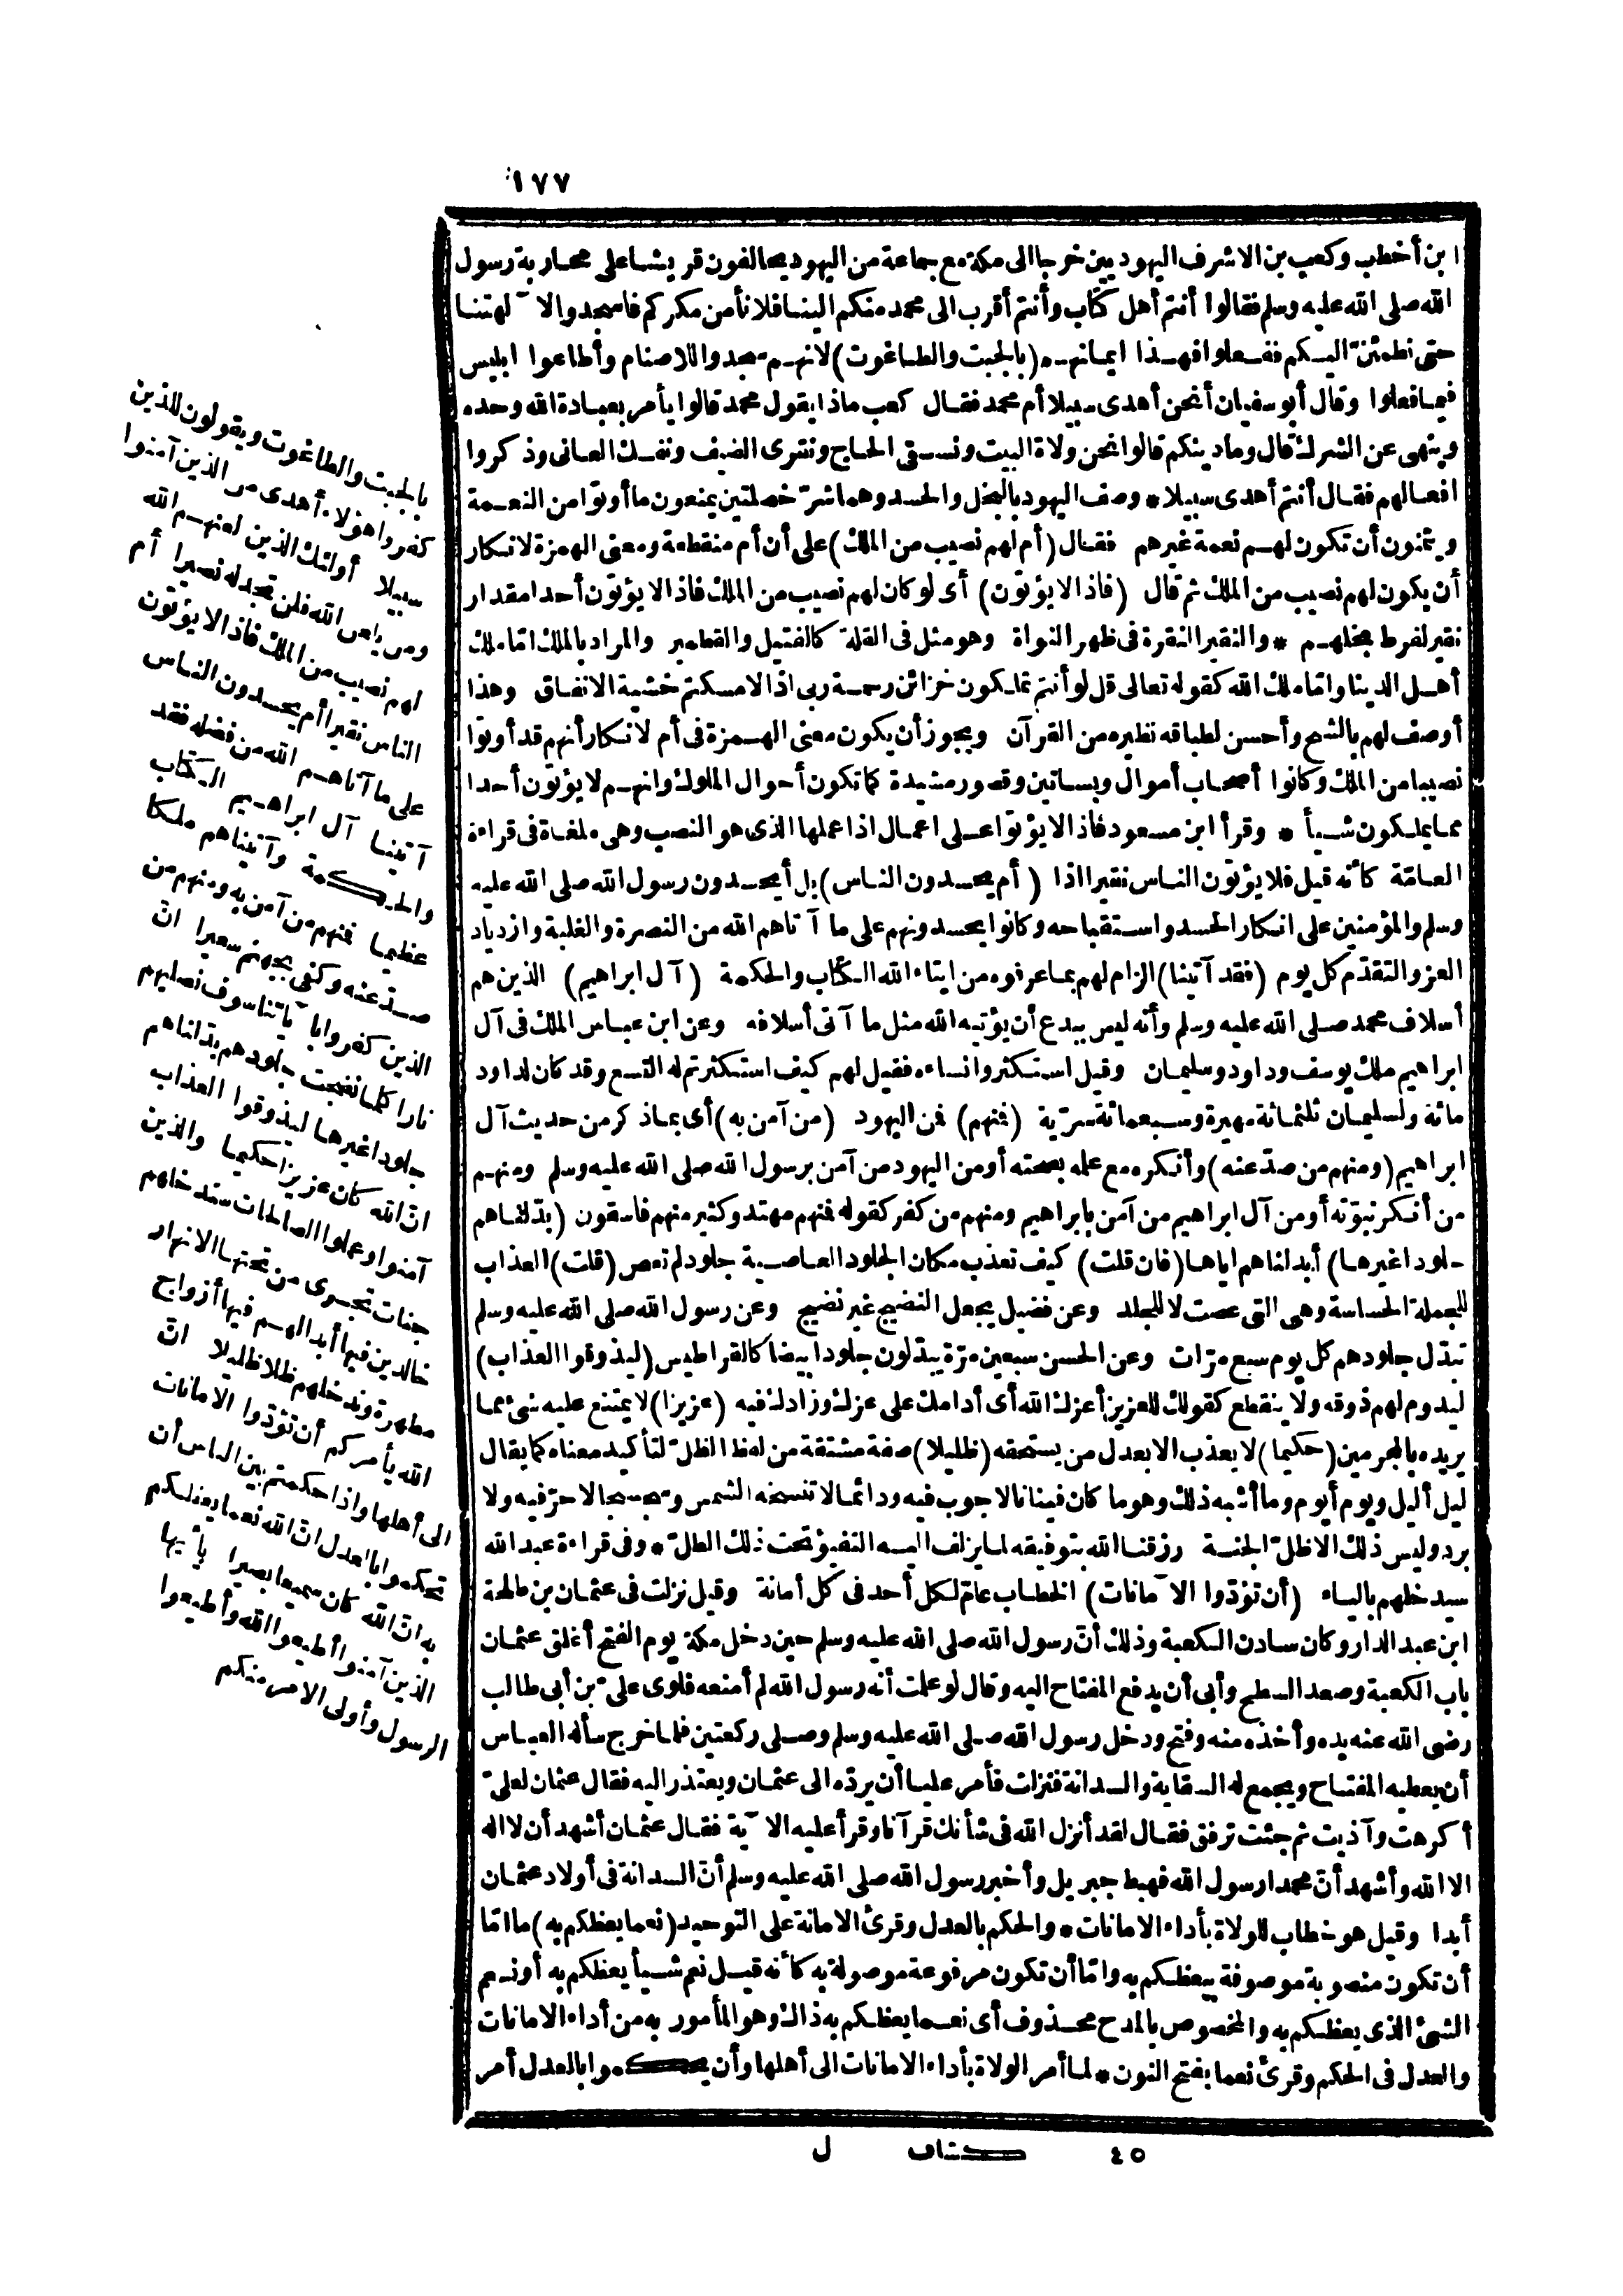 ١٧٧
ابن أخطب وكعب بن الاشرف اليهوديين خرجا الى مكة مع جماعة من اليهود يحالفون قريشا على محاربة رسول
الله صلى الله عليه وسلم فقالوا أنتم أهل كتاب وأنتم أقرب الى محمد منكم الينا فلا نأمن مكركم فاسجدوا لآلهتنا
حتى نطمئنّ اليكم ففعلوا فهذا ايمانهم (بالجبت والطاغوت) لانهم سجدوا للاصنام وأطاعوا ابليس
فيما فعلوا وقال أبو سفيان أنحن أهدى سبيلا أم محمد فقال كعب ماذا يقول محمد قالوا يأمر بعبادة الله وحده
وينهى عن الشرك قال وما دينكم قالوا نحن ولاة البيت ونسقى الحاج ونقرى الضيف ونفك العانى وذكروا
افعالهم فقال أنتم أهدى سبيلا * وصف اليهود بالبخل والحسد وهما شرّ خصلتين يمنعون ما أوتوا من النعمة
ويتمنون أن تكون لهم نعمة غيرهم فقال (أم لهم نصيب من الملك) على أن أم منقطعة ومعنى الهمزة لانكار
أن يكون لهم نصيب من الملك ثم قال (فاذا لا يؤتون) أى لو كان لهم نصيب من الملك فاذا لا يؤتون أحدا مقدار
نقير لفرط بخلهم * والنقير النقرة فى ظهر النواة وهو مثل فى القلة كالفتيل والقطمير والمراد بالملك امّا ملك
أهل الدنيا وامّا ملك الله كقوله تعالى قل لو أنتم تملكون خزائن رحمة ربى اذا لامسكتم خشية الانفاق وهذا
أوصف لهم بالشح وأحسن لطباقه نظيره من القرآن ويجوز أن يكون معنى الهمزة فى أم لانكار أنهم قد أوتوا
نصيبا من الملك وكانوا أصحاب أموال وبساتين وقصور مشيدة كما تكون أحوال الملوك وانهم لا يؤتون أحدا
مما يملكون شيأ * وقرأ ابن مسعود فاذا لا يؤتوا على اعمال اذا عملها الذى هو النصب وهى ملغاة فى قراءة
العامّة كأنه قيل فلا يؤتون الناس نقيرا اذا (أم يحسدون الناس) بل أيحسدون رسول الله صلى الله عليه
وسلم والمؤمنين على انكار الحسد واستقباحه وكانوا يحسدونهم على ما آتاهم الله من النصرة والغلبة وازدياد
العز والتقدّم كل يوم (فقد آتينا) الزام لهم بما عرفوه من ايتاء الله الكتاب والحكمة (آل ابراهيم) الذين هم
أسلاف محمد صلى الله عليه وسلم وأنه ليس ببدع أن يؤتيه الله مثل ما آتى أسلافه وعن ابن عباس الملك فى آل
ابراهيم ملك يوسف وداود وسليمان وقيل استكثروا نساءه فقيل لهم كيف استكثرتم له التسع وقد كان لداود
مائة ولسليمان ثلثمائة مهيرة وسبعمائة سرّية (فمنهم) فمن اليهود (من آمن به) أى بما ذكر من حديث آل
ابراهيم (ومنهم من صدّ عنه) وأنكره مع علمه بصحته أو من اليهود من آمن برسول الله صلى الله عليه وسلم ومنهم
من أنكر نبوّته أو من آل ابراهيم من آمن بابراهيم ومنهم من كفر كقوله فمنهم مهتد وكثير منهم فاسقون (بدّلناهم
جلودا غيرها) أبدلناهم اياها (فان قلت) كيف تعذب مكان الجلود العاصية جلود لم تعص (قلت) العذاب
للجملة الحساسة وهى التى عصت لا للجلد وعن فضيل يجعل النضيج غير نضيج وعن رسول الله صلى الله عليه وسلم
تبدّل جلودهم كل يوم سبع مرّات وعن الحسن سبعين مرّة يبدّلون جلودا بيضا كالقراطيس (ليذوقوا العذاب)
ليدوم لهم ذوقه ولا ينقطع كقولك للعزيز أعزك الله أى أدامك على عزك وزادك فيه (عزيزا) لا يمتنع عليه شئ مما
يريده بالمجرمين (حكيما) لا يعذب الا بعدل من يستحقه (ظليلا) صفة مشتقة من لفظ الظلّ لتأكيد معناه كما يقال
ليل أليل ويوم أيوم وما أشبه ذلك وهو ما كان فينانا لا جوب فيه ودائما لا تنسخه الشمس وسجسجا لا حرّ فيه ولا
برد وليس ذلك الا ظلّ الجنة رزقنا الله بتوفيقه لما يزلف اليه التفيؤ تحت ذلك الظلّ * وفى قراءة عبد الله
سيدخلهم بالياء (أن تؤدّوا الامانات) الخطاب عامّ لكل أحد فى كل أمانة وقيل نزلت فى عثمان بن طلحة
ابن عبد الدار وكان سادن الكعبة وذلك أنّ رسول الله صلى الله عليه وسلم حين دخل مكة يوم الفتح أغلق عثمان
باب الكعبة وصعد السطح وأبى أن يدفع المفتاح اليه وقال لو علمت أنه رسول الله لم أمنعه فلوى علىّ بن أبى طالب
رضى الله عنه يده وأخذه منه وفتح ودخل رسول الله صلى الله عليه وسلم وصلى ركعتين فلما خرج سأله العباس
أن يعطيه المفتاح ويجمع له السقاية والسدانة فنزلت فأمر عليا أن يردّه الى عثمان ويعتذر اليه فقال عثمان لعلىّ
أكرهت وآذيت ثم جئت ترفق فقال لقد أنزل الله فى شأنك قرآنا وقرأ عليه الآية فقال عثمان أشهد أن لا اله
الا الله وأشهد أنّ محمدا رسول الله فهبط جبريل وأخبر رسول الله صلى الله عليه وسلم أنّ السدانة فى أولاد عثمان
أبدا وقيل هو خطاب للولاة بأداء الامانات * والحكم بالعدل وقرئ الامانة على التوحيد (نعما يعظكم به) ما امّا
أن تكون منصوبة موصوفة بيعظكم به وامّا أن تكون مرفوعة موصولة به كأنه قيل نعم شيأ يعظكم به أو نعم
الشئ الذى يعظكم به والمخصوص بالمدح محذوف أى نعما يعظكم به ذاك وهو المأمور به من أداء الامانات
والعدل فى الحكم وقرئ نعما بفتح النون * لما أمر الولاة بأداء الامانات الى أهلها وأن يحكموا بالعدل أمر
بالجبت والطاغوت ويقولون للذين
كفروا هؤلاء أهدى من الذين آمنوا
سبيلا أولئك الذين لعنهم الله
ومن يلعن الله فلن تجد له نصيرا أم
لهم نصيب من الملك فاذا لا يؤتون
الناس نقيرا أم يحسدون الناس
على ما آتاهم الله من فضله فقد
آتينا آل ابراهيم الكتاب
والحكمة وآتيناهم ملكا
عظيما فمنهم من آمن به ومنهم من
صدّ عنه وكفى بجهنم سعيرا انّ
الذين كفروا بآياتنا سوف نصليهم
نارا كلما نضجت جلودهم بدّلناهم
جلودا غيرها ليذوقوا العذاب
انّ الله كان عزيزا حكيما والذين
آمنوا وعملوا الصالحات سندخلهم
جنات تجرى من تحتها الانهار
خالدين فيها أبدا لهم فيها أزواج
مطهرة وندخلهم ظلا ظليلا انّ
الله يأمركم أن تؤدّوا الامانات
الى أهلها واذا حكمتم بين الناس أن
تحكموا بالعدل انّ الله نعما يعظكم
به انّ الله كان سميعا بصيرا يأيها
الذين آمنوا أطيعوا الله وأطيعوا
الرسول وأولى الامر منكم
٤٥ كشاف ل